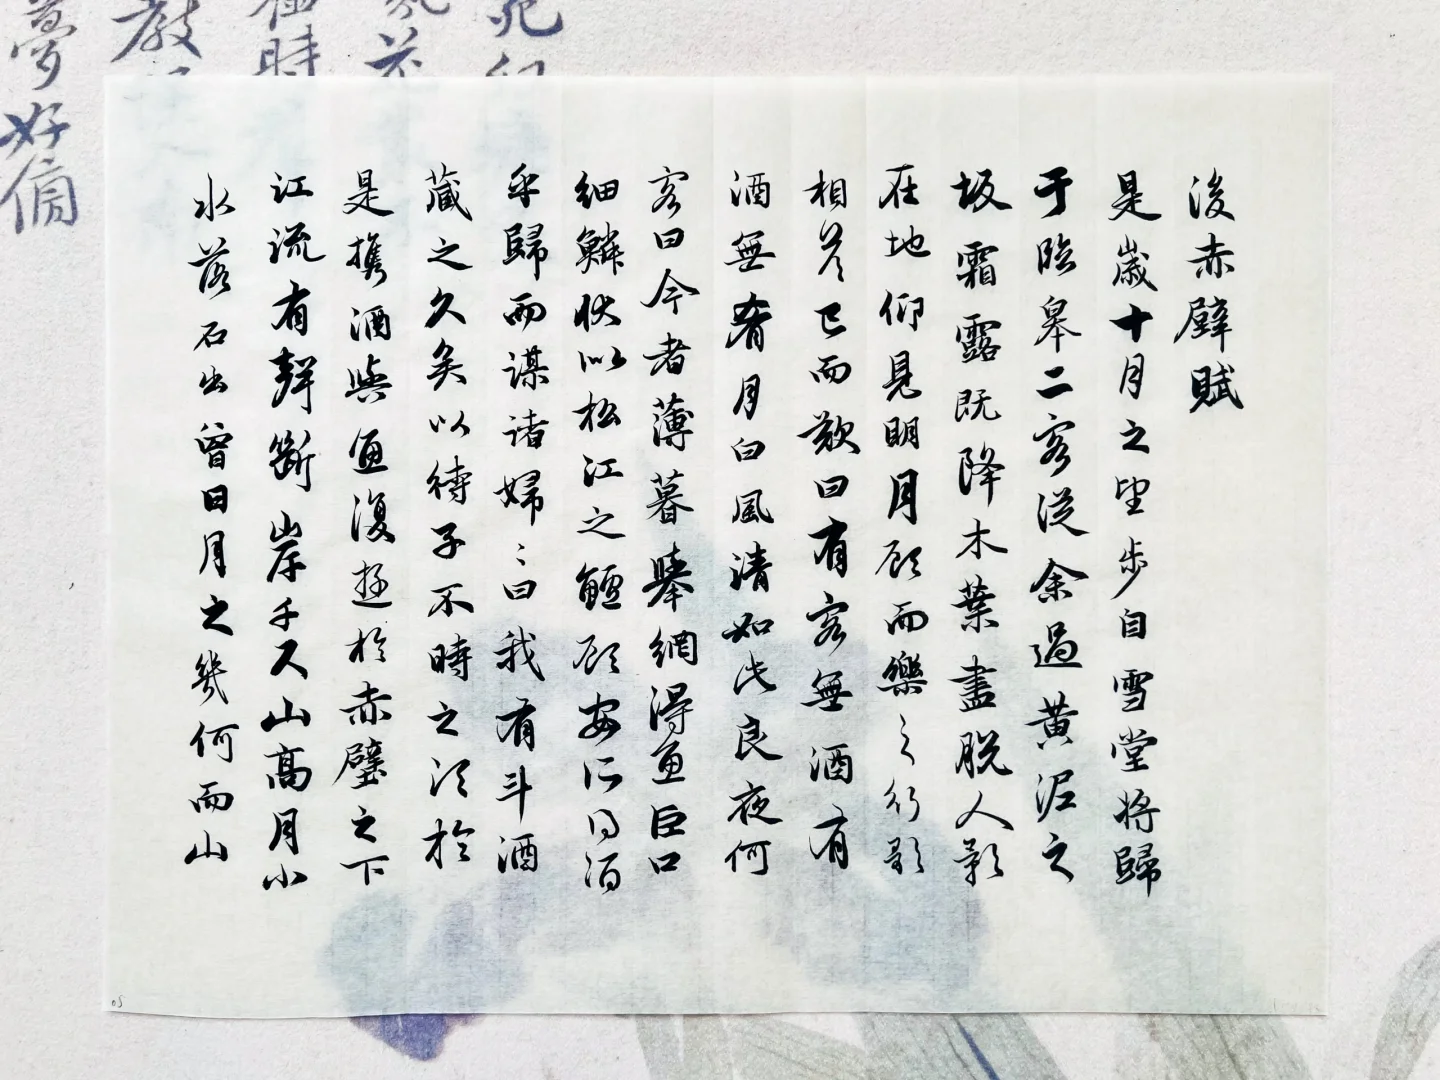 後赤壁賦
是歲十月之望步自雪堂將歸
于臨皋二客從余過黃泥之
坂霜露既降木葉盡脫人影
在地仰見明月顧而樂之行歌
相答已而歎曰有客無酒有
酒無肴月白風清如此良夜何
客曰今者薄暮舉網得魚巨口
細鱗狀似松江之鱸顧安所得酒
乎歸而謀諸婦〻曰我有斗酒
藏之久矣以待子不時之須於
是攜酒與魚復遊於赤壁之下
江流有聲斷岸千尺山高月小
水落石出曾日月之幾何而山
夢好傷
教
時